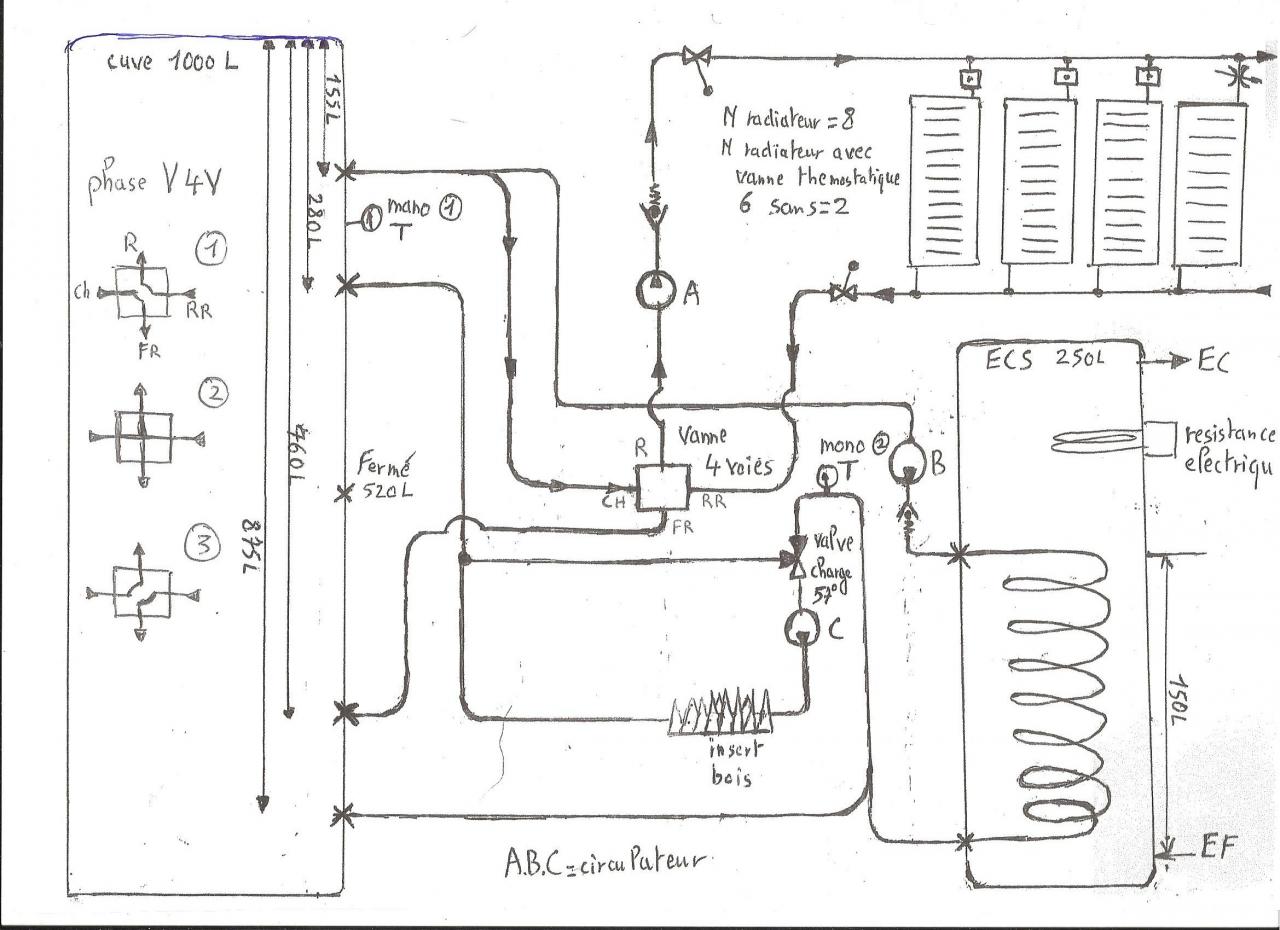 cuve 1000 L
155L
280L
760L
875L
phase V4V
1
R
Ch
RR
FR
2
3
mano 1
T
Fermé
520L
N radiateur = 8
N radiateur avec
vanne themostatique
6 sans = 2
A
R
Vanne
4 voiés
CH
RR
FR
mono 2
T
B
valve
charge
57°
C
insert
bois
ECS 250L
EC
resistance
electriqu
150L
EF
A.B.C = circulateur